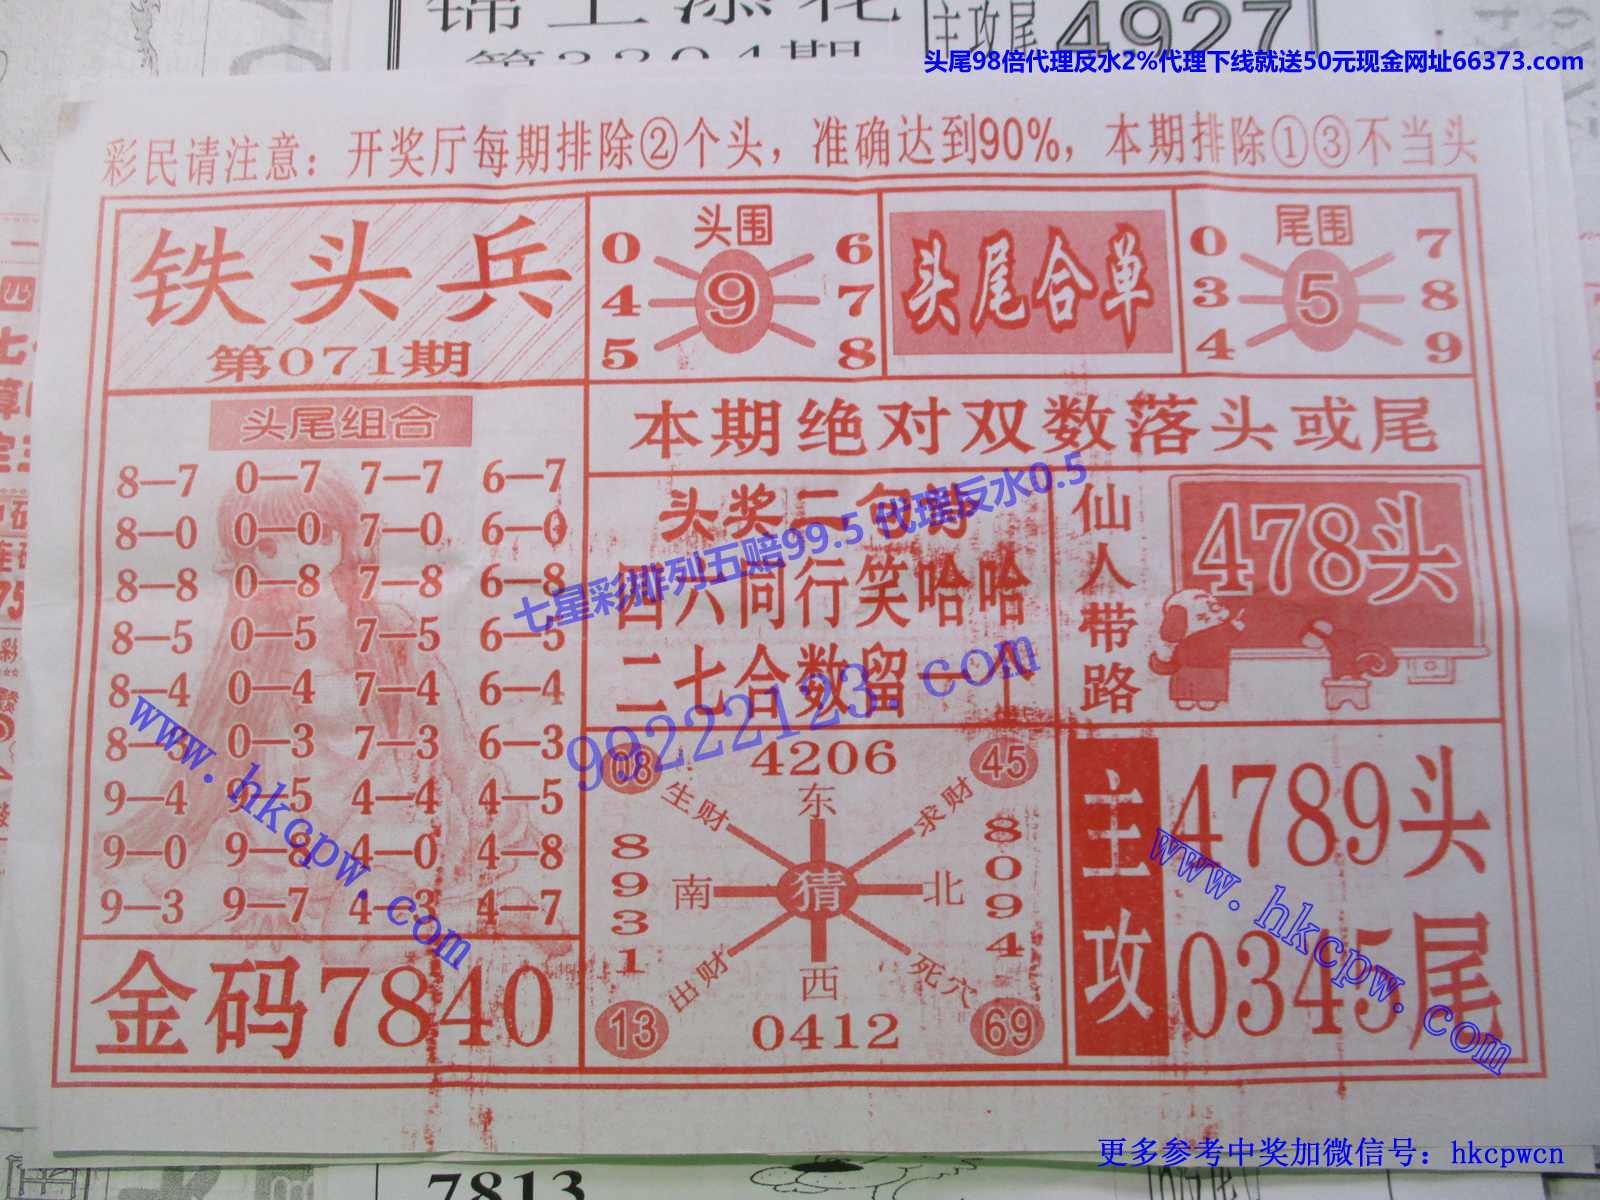 锦上添花
第2204期
主攻尾
4927
头尾98倍代理反水2%代理下线就送50元现金网址66373.com
彩民请注意：开奖厅每期排除②个头，准确达到90%，本期排除①③不当头
铁头兵
第071期
头围
0 6
4 9 7
5 8
头尾合单
尾围
0 7
3 5 8
4 9
头尾组合
8—7 0—7 7—7 6—7
8—0 0—0 7—0 6—0
8—8 0—8 7—8 6—8
8—5 0—5 7—5 6—5
8—4 0—4 7—4 6—4
8—3 0—3 7—3 6—3
9—4 9—5 4—4 4—5
9—0 9—8 4—0 4—8
9—3 9—7 4—3 4—7
金码7840
本期绝对双数落头或尾
头奖二句诗
四六同行笑哈哈
二七合数留一个
七星彩排列五赔99.5 代理反水0.5
99222123.com
仙人带路
478头
08 4206 45
生财 东 求财
8931 南 猜 北 8094
出财 西 死穴
13 0412 69
主攻
4789头
0345尾
www.hkcpw.com
www.hkcpw.com
更多参考中奖加微信号：hkcpwcn
7813